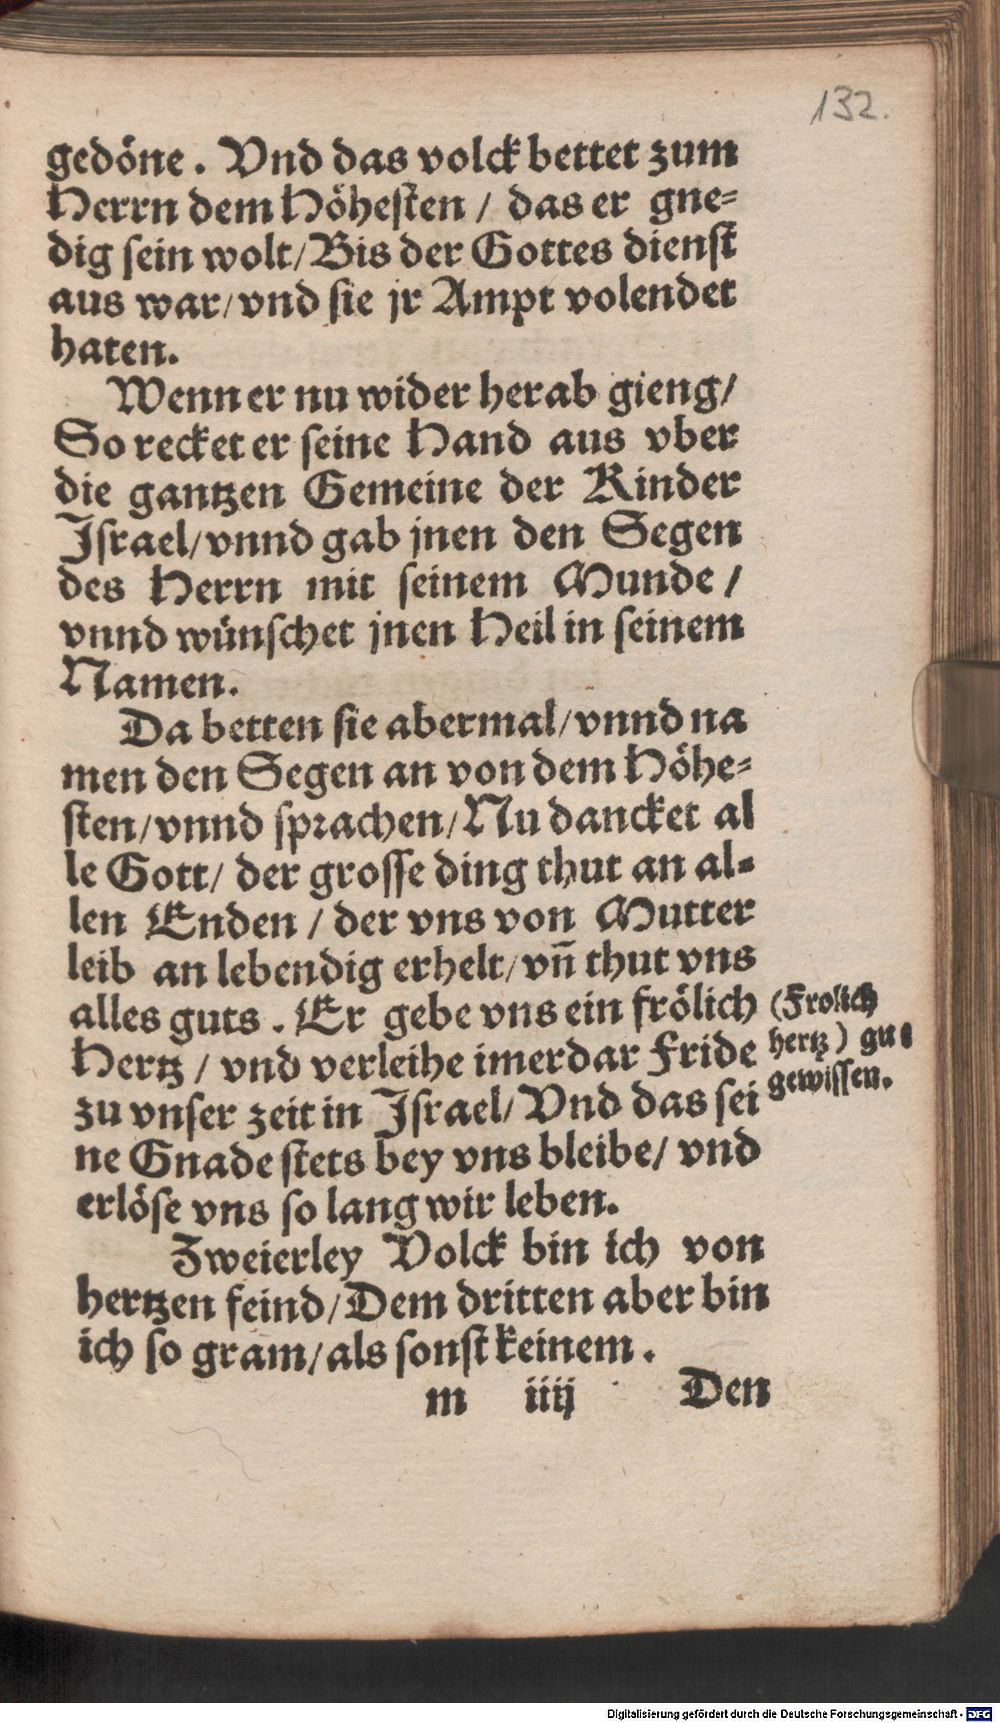 132.
gedöne. Vnd das volck bettet zum
Herrn dem Höhesten / das er gne-
dig sein wolt / Bis der Gottes dienst
aus war / vnd sie jr Ampt volendet
haten.
Wenn er nu wider herab gieng /
So recket er seine Hand aus vber
die gantzen Gemeine der Kinder
Israel / vnnd gab jnen den Segen
des Herrn mit seinem Munde /
vnnd wünschet jnen Heil in seinem
Namen.
Da betten sie abermal / vnnd na
men den Segen an von dem Höhe-
sten / vnnd sprachen / Nu dancket al
le Gott / der grosse ding thut an al-
len Enden / der vns von Mutter
leib an lebendig erhelt / vn̄ thut vns
alles guts. Er gebe vns ein frölich
Hertz / vnd verleihe imerdar Fride
zu vnser zeit in Israel / Vnd das sei
ne Gnade stets bey vns bleibe / vnd
erlöse vns so lang wir leben.
(Frolich
hertz) gut
gewissen.
Zweierley Volck bin ich von
hertzen feind / Dem dritten aber bin
ich so gram / als sonst keinem.
m iiij Den
Digitalisierung gefördert durch die Deutsche Forschungsgemeinschaft - DFG